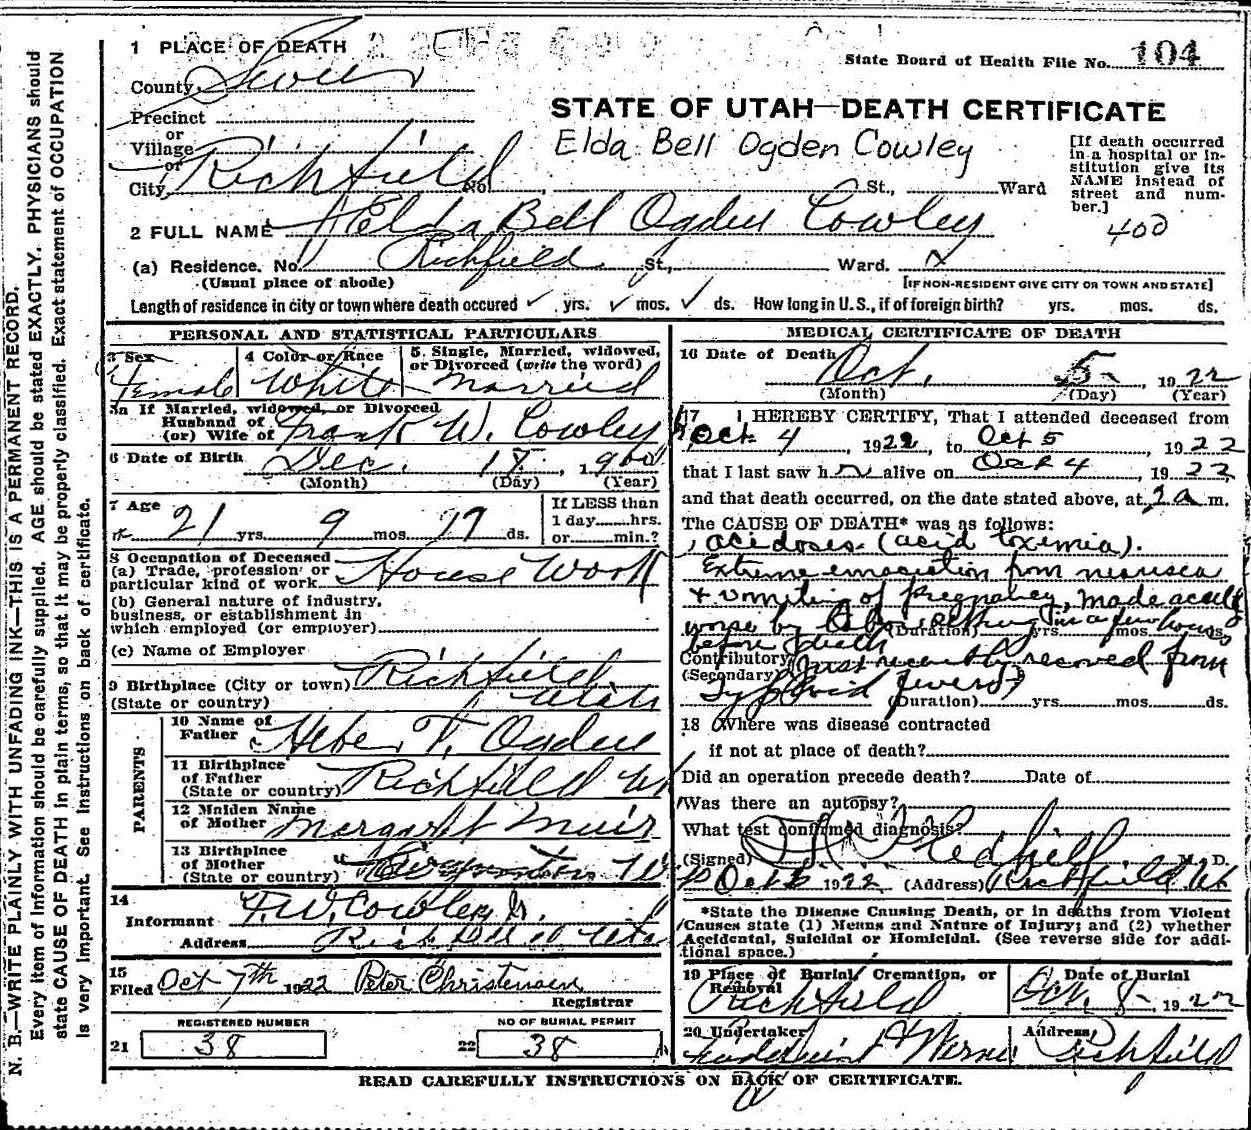 1 PLACE OF DEATH
State Board of Health File No. 104
County Sevier
STATE OF UTAH—DEATH CERTIFICATE
Precinct
or
Village
or
City Richfield No. St., Ward
Elda Bell Ogden Cowley
[If death occurred
in a hospital or in-
stitution give its
NAME instead of
street and num-
ber.]
400
2 FULL NAME Elda Bell Ogden Cowley
(a) Residence. No. Richfield St., Ward.
(Usual place of abode)
[IF NON-RESIDENT GIVE CITY OR TOWN AND STATE]
Length of residence in city or town where death occured ✓ yrs. ✓ mos. ✓ ds. How long in U.S., if of foreign birth? yrs. mos. ds.
PERSONAL AND STATISTICAL PARTICULARS
3 Sex
Female
4 Color or Race
White
5. Single, Married, widowed,
or Divorced (write the word)
Married
5a If Married, widowed, or Divorced
Husband of
(or) Wife of Frank W. Cowley
6 Date of Birth Dec. 18, 1900
(Month) (Day) (Year)
7 Age
21 yrs. 9 mos. 17 ds.
If LESS than
1 day hrs.
or min.?
8 Occupation of Deceased
(a) Trade, profession or
particular kind of work House Work
(b) General nature of industry,
business, or establishment in
which employed (or employer)
(c) Name of Employer
9 Birthplace (City or town) Richfield
(State or country) Utah
PARENTS
10 Name of
Father Heber T. Ogden
11 Birthplace
of Father
(State or country) Richfield Ut
12 Maiden Name
of Mother Margaret Muir
13 Birthplace
of Mother
(State or country)
14
Informant F. W. Cowley Jr.
Address Richfield Utah
15
Filed Oct 7th 1922 Peter Christensen
Registrar
REGISTERED NUMBER
21 38
NO OF BURIAL PERMIT
22 38
MEDICAL CERTIFICATE OF DEATH
16 Date of Death Oct. 5, 1922
(Month) (Day) (Year)
17 I HEREBY CERTIFY, That I attended deceased from
Oct 4, 1922, to Oct 5 1922
that I last saw her alive on Oct 4, 1922,
and that death occurred, on the date stated above, at 2 a m.
The CAUSE OF DEATH* was as follows:
acidoses (acid toxemia).
Extreme emaciation from nausea
& vomiting of pregnancy, made acutely
worse by in a few hours
(Duration) yrs. mos. ds.
before death
Contributory (Just recently recovered from
(Secondary)
Typhoid fever)
(Duration) yrs. mos. ds.
18 Where was disease contracted
if not at place of death?
Did an operation precede death? Date of
Was there an autopsy?
What test confirmed diagnosis?
(Signed) M. D.
Oct 6 1922 (Address) Richfield Ut
*State the Disease Causing Death, or in deaths from Violent
Causes state (1) Means and Nature of Injury; and (2) whether
Accidental, Suicidal or Homicidal. (See reverse side for addi-
tional space.)
19 Place of Burial, Cremation, or
Removal
Richfield
Date of Burial
Oct. 8- 1922
20 Undertaker
Address
Richfield
READ CAREFULLY INSTRUCTIONS ON BACK OF CERTIFICATE.
N. B.—WRITE PLAINLY WITH UNFADING INK—THIS IS A PERMANENT RECORD.
Every item of information should be carefully supplied. AGE should be stated EXACTLY. PHYSICIANS should
state CAUSE OF DEATH in plain terms, so that it may be properly classified. Exact statement of OCCUPATION
is very important. See instructions on back of certificate.